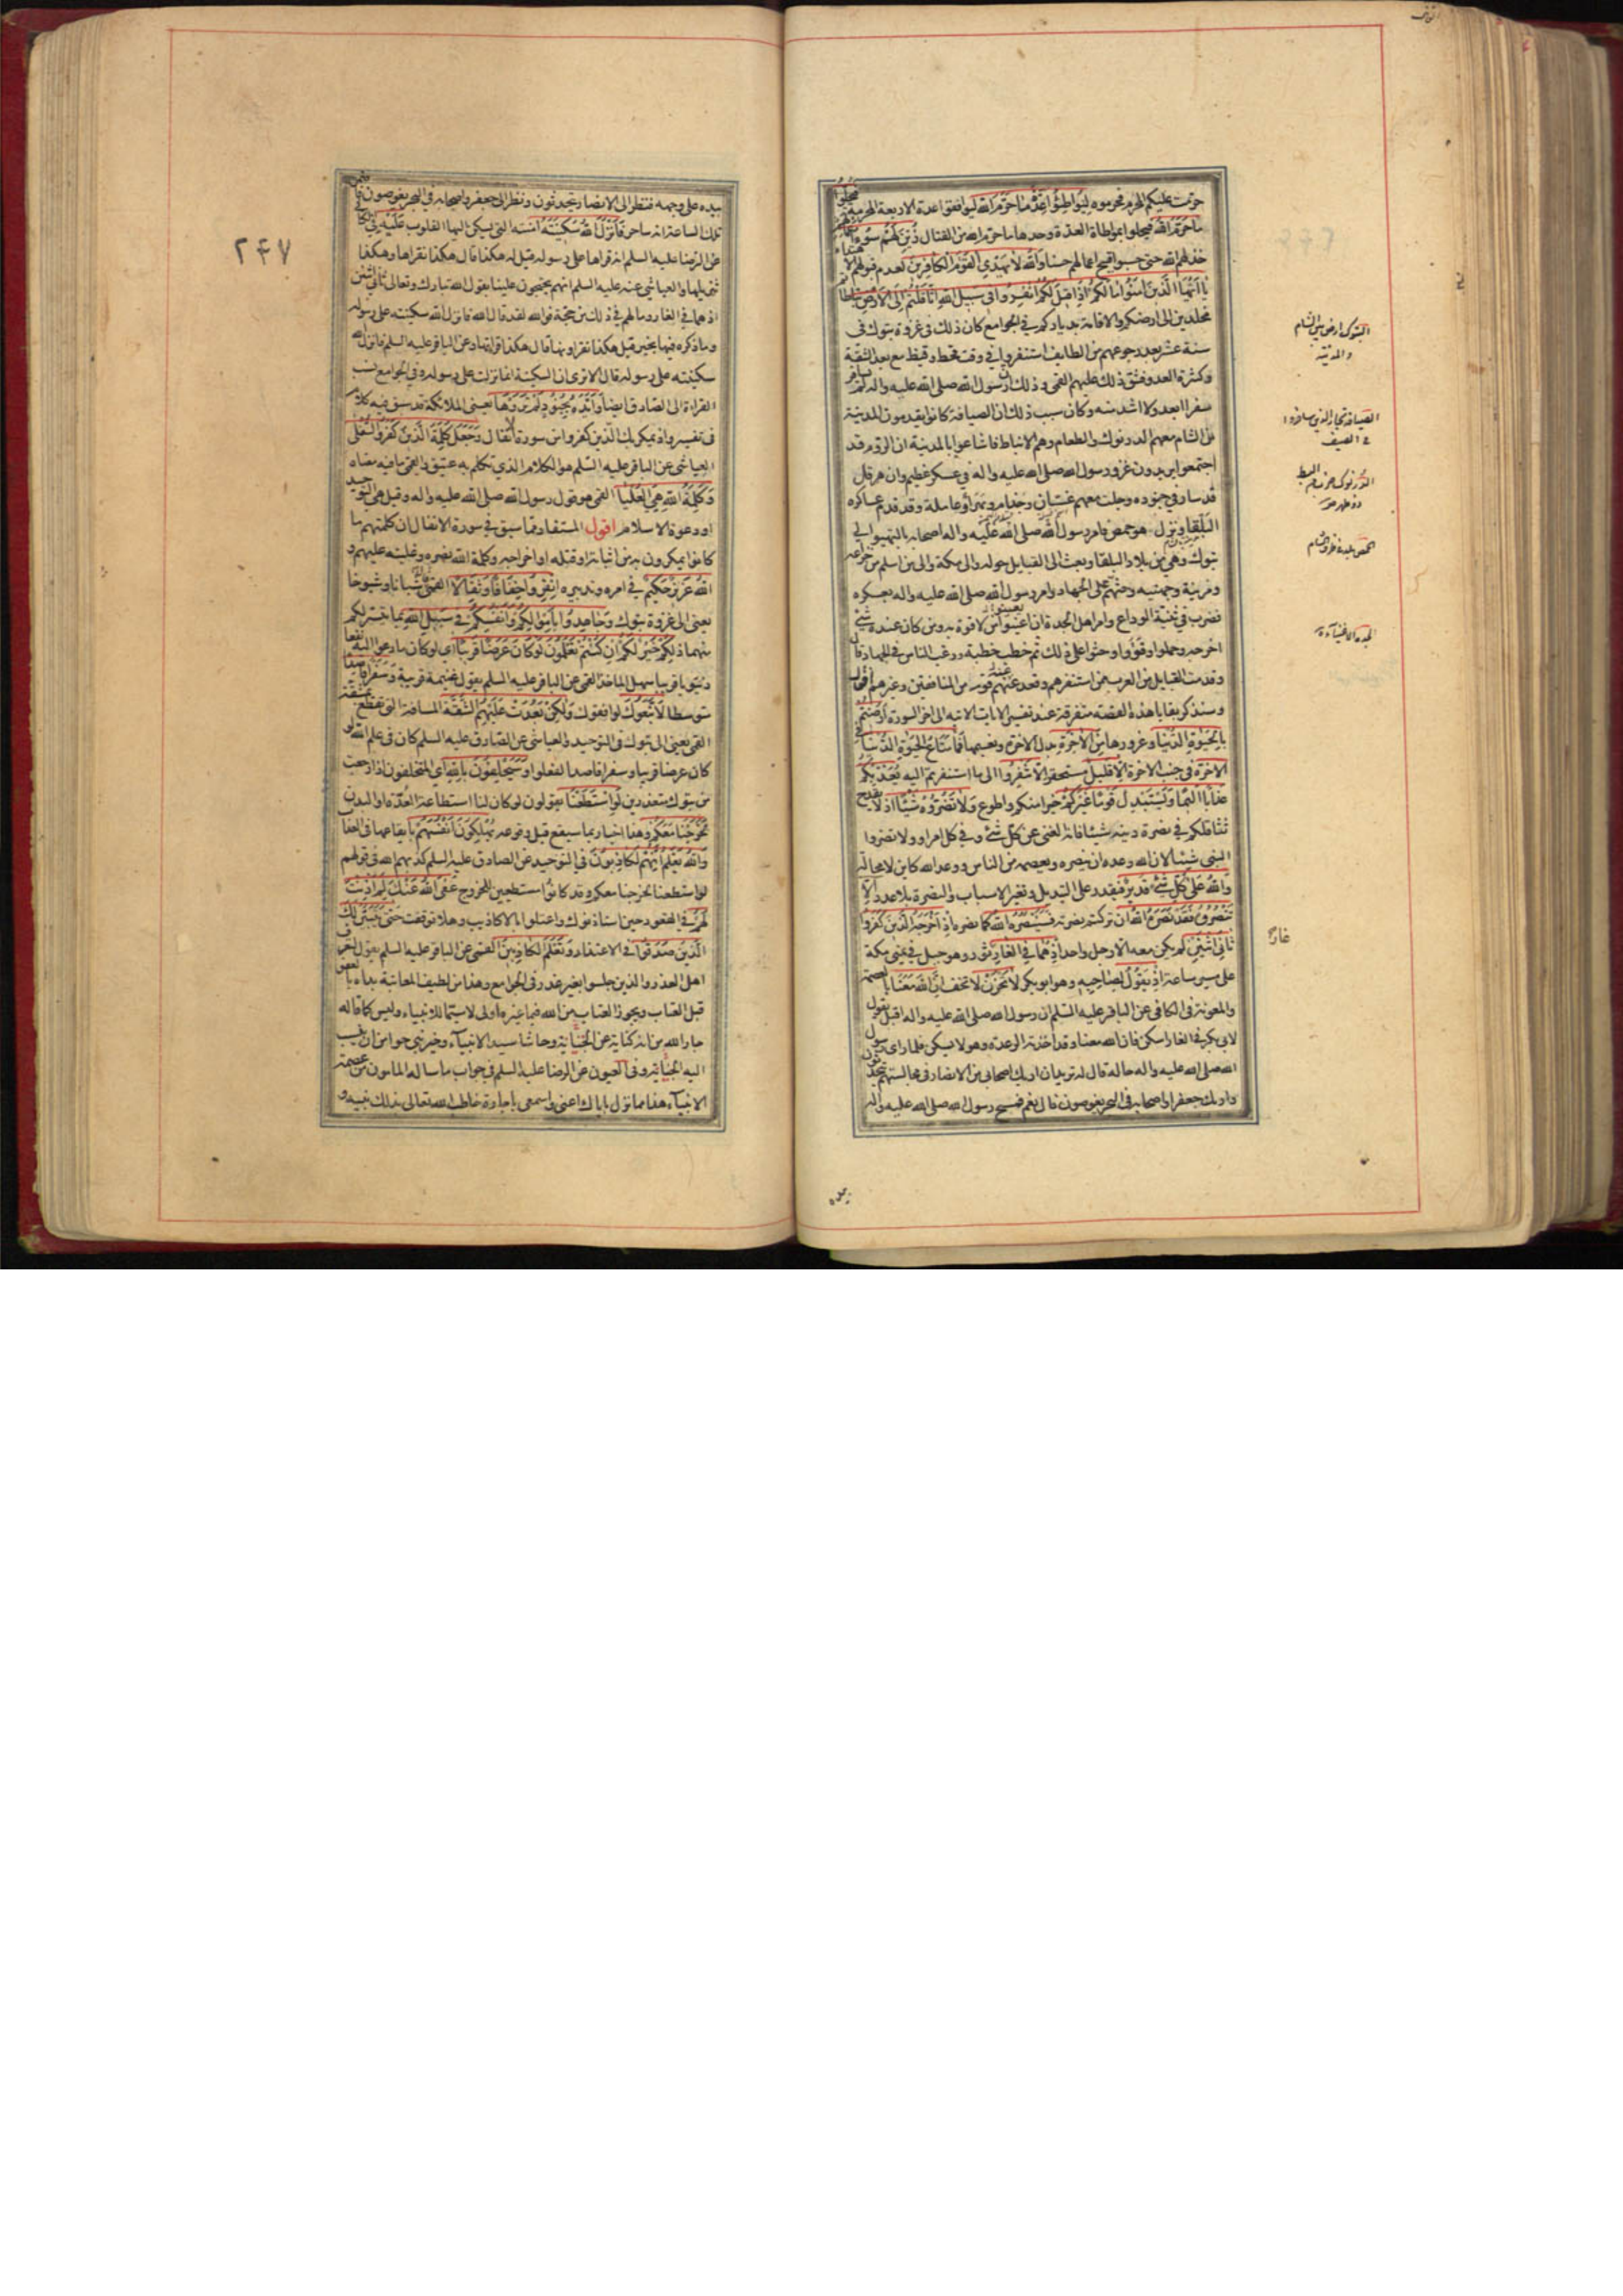 حرمت عليكم المحرم فحرموه ليواطئوا عدة ما حرم الله ليوافقوا عدة الاربعة المحرمة فيحلوا
ما حرم الله فيحلوا بمواطاة العدة وحدها ما حرم الله من القتال زين لهم سوء اعمالهم
خذلهم الله حتى حسبوا قبيح اعمالهم حسنا والله لا يهدي القوم الكافرين
يا ايها الذين امنوا ما لكم اذا قيل لكم انفروا في سبيل الله اثاقلتم الى الارض تباطأتم
مخلدين الى ارضكم والاقامة بدياركم في الجوامع كان ذلك في غزوة تبوك في
سنة عشر بعد رجوعهم من الطايف استنفروا في وقت قحط وقيظ مع بعد الشقة
وكثرة العدو فشق ذلك عليهم القمي وذلك ان رسول الله صلى الله عليه واله لم يسافر
سفرا ابعد ولا اشد منه وكان سبب ذلك ان الصيافة كانوا يقدمون المدينة
من الشام معهم الدرنوك والطعام وهم الانباط فاشاعوا بالمدينة ان الروم قد
اجتمعوا يريدون غزو رسول الله صلى الله عليه واله في عسكر عظيم وان هرقل
قد سار في جنوده وجلب معهم غسان وجذام وبهراء وعاملة وقد قدم عساكره
البلقا ونزل هو حمص فامر رسول الله صلى الله عليه واله اصحابه بالتهيؤ الى
تبوك وهي من بلاد البلقا وبعث الى القبايل حوله والى مكة والى من اسلم من خزاعة
ومزينة وجهينة وحثهم على الجهاد وامر رسول الله صلى الله عليه واله بعسكره
فضرب في ثنية الوداع وامر اهل الجدة ان يعينوا من لا قوة به ومن كان عنده شئ
اخرجه وحملوا وقووا وحثوا على ذلك ثم خطب خطبة ورغب الناس في الجهاد قال
وقدمت القبايل من العرب ممن استنفرهم وقعد عنه قوم من المنافقين وغيرهم اقول
وسنذكر بقايا هذه القصة متفرقة عند تفسير الايات الاتية الى اخر السورة ارضيتم
بالحيوة الدنيا وغرورها من الاخرة بدل الاخرة ونعيمها فما متاع الحيوة الدنيا في
الاخرة في جنب الاخرة الا قليل مستحقر الا تنفروا الى ما استنفرتم اليه يعذبكم
عذابا اليما ويستبدل قوما غيركم خيرا منكم واطوع ولا تضروه شيئا اذ لا يقدح
تثاقلكم في نصرة دينه شيئا فانه الغني عن كل شئ وفي كل امر او ولا تضروا
النبي شيئا لان الله وعده ان ينصره ويعصمه من الناس ووعد الله كاين لا محالة
والله على كل شئ قدير فيقدر على التبديل وتغير الاسباب والنصرة بلا مدد الا
تنصروه فقد نصره الله ان تركتم نصرته فسينصره الله كما نصره اذ اخرجه الذين كفروا
ثاني اثنين لم يكن معه الا رجل واحد اذ هما في الغار ثور وهو جبل في يمنى مكة
على مسير ساعة اذ يقول لصاحبه وهو ابو بكر لا تحزن لا تخف ان الله معنا بالعصمة
والمعونة في الكافي عن الباقر عليه السلم ان رسول الله صلى الله عليه واله اقبل يقول
لابي بكر في الغار اسكن فان الله معنا وقد اخذته الرعدة وهو لا يسكن فلما راى رسول
الله صلى الله عليه واله حاله قال له تريد ان اريك اصحابي من الانصار في مجالسهم يتحدثون
واريك جعفرا واصحابه في البحر يغوصون قال نعم فمسح رسول الله صلى الله عليه واله
بيده
التبوك ارض بين الشام
والمدينة
الصيافة تجار الذين سافروا
في الصيف
الدرنوك ضرب من البسط
ذو خمل
حمص بلدة من الشام
الجدة الاغنياء
غار
٢٤٧
بيده على وجهه فنظر الى الانصار يتحدثون ونظر الى جعفر واصحابه في البحر يغوصون فاضمر
تلك الساعة انه ساحر فانزل الله سكينته امنته التي تسكن اليها القلوب عليه في الكافي
عن الرضا عليه السلم انه قراها على رسوله قيل له هكذا قال هكذا نقراها وهكذا
تنزيلها والعياشي عنه عليه السلم انهم يحتجون علينا بقول الله تبارك وتعالى ثاني اثنين
اذ هما في الغار وما لهم في ذلك من حجة فوالله لقد قال الله فانزل الله سكينته على رسوله
وما ذكره فيها بخير قيل هكذا تقراونها قال هكذا قراتها وعن الباقر عليه السلم فانزل الله
سكينته على رسوله قال الا ترى ان السكينة انما نزلت على رسوله وفي الجوامع نسب
القراءة الى الصادق ايضا وايده بجنود لم تروها يعني الملائكة قد سبق فيه كلام
في تفسير واذ يمكر بك الذين كفروا من سورة الانفال وجعل كلمة الذين كفروا السفلى
العياشي عن الباقر عليه السلم هو الكلام الذي تكلم به عتيق والقمي ما فيه معناه
وكلمة الله هي العليا القمي هو قول رسول الله صلى الله عليه واله وقيل هي التوحيد
او دعوة الاسلام اقول المستفاد مما سبق في سورة الانفال ان كلمتهم ما
كانوا يمكرون به من اثباته او قتله او اخراجه وكلمة الله نصره وغلبته عليهم و
الله عزيز حكيم في امره وتدبيره انفروا خفافا وثقالا القمي شبانا وشيوخا
يعني الى غزوة تبوك وجاهدوا باموالكم وانفسكم في سبيل الله بما تيسر لكم
منهما ذلكم خير لكم ان كنتم تعلمون لو كان عرضا قريبا اي لو كان ما دعوا اليه نفعا
دنيويا قريبا سهل الماخذ القمي عن الباقر عليه السلم يقول غنيمة قريبة وسفرا قاصدا
متوسطا لاتبعوك لوافقوك ولكن بعدت عليهم الشقة المسافة التي تقطع بمشقة
القمي يعني الى تبوك في التوحيد والعياشي عن الصادق عليه السلم كان في علم الله لو
كان عرضا قريبا وسفرا قاصدا لفعلوا وسيحلفون بالله اي المتخلفون اذا رجعت
من تبوك معتذرين لو استطعنا يقولون لو كان لنا استطاعة العدة او البدن
لخرجنا معكم وهذا اخبار بما سيقع قبل وقوعه يهلكون انفسهم بايقاعها في العذاب
والله يعلم انهم لكاذبون في التوحيد عن الصادق عليه السلم كذبهم الله في قولهم
لو استطعنا لخرجنا معكم وقد كانوا مستطيعين للخروج عفى الله عنك لم اذنت
لهم في القعود حين استاذنوك واعتلوا بالاكاذيب وهلا توقفت حتى يتبين لك
الذين صدقوا في الاعتذار وتعلم الكاذبين القمي عن الباقر عليه السلم يقول لتعرف
اهل العذر والذين جلسوا بغير عذر في الجوامع وهذا من لطيف المعاتبة بداه بالعفو
قبل العتاب ويجوز العتاب من الله فيما غيره اولى لا سيما للانبياء وليس كما قاله
جار الله من انه كناية عن الجناية وحاشا سيد الانبياء وخير بني حوا من ان ينسب
اليه الجناية وفي العيون عن الرضا عليه السلم في جواب ما ساله المامون من عصمة
الانبياء هذا مما نزل باياك اعني واسمعي يا جارة خاطب الله تعالى بذلك نبيه و